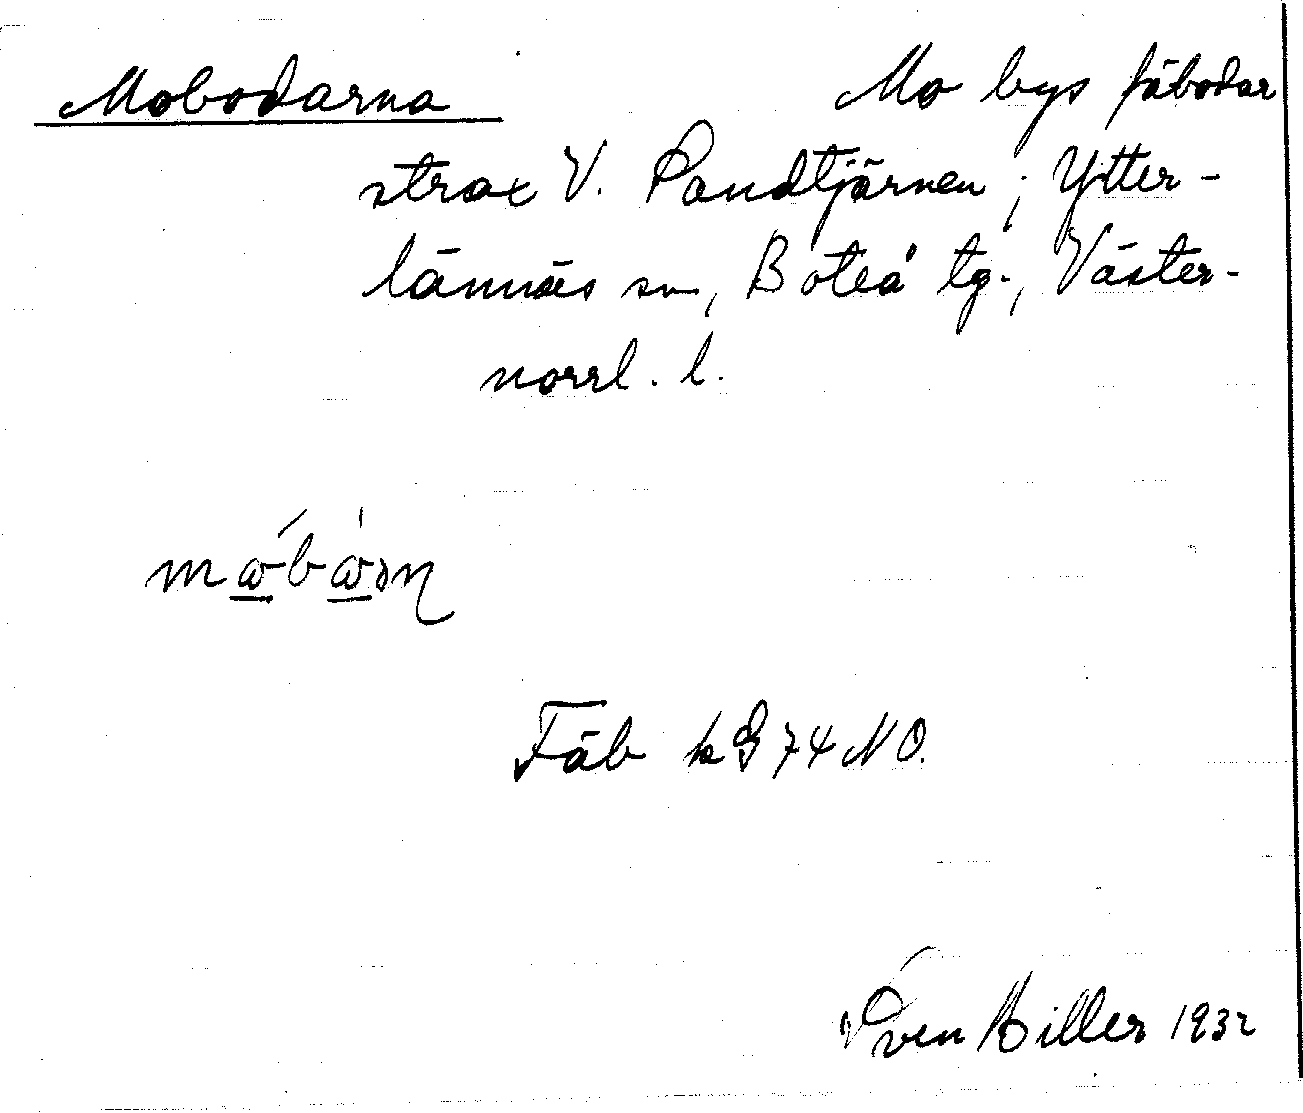 Mobodarna Mo bys fäbodar
strax V. Sandtjärnen ; Ytter-
lännäs sn, Boteå tg., Väster-
norrl. l.
Fäb k G 74 NO.
Sven Hiller 1932